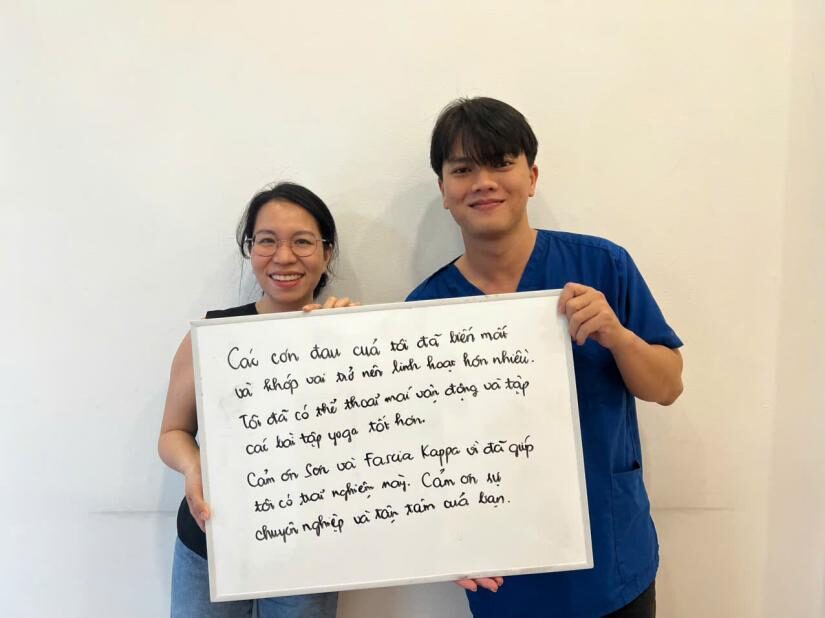 Các cơn đau cuả tôi đã biến mất
và khớp vai trở nên linh hoạt hơn nhiều.
Tôi đã có thể thoaỉ maí vận động và tập
các bài tập yoga tốt hơn.
Cảm ơn Sơn và Fascia Kappa vì đã giúp
tôi có traỉ nghiệm này. Cảm ơn sự
chuyên nghiệp và tận tâm cuả bạn.